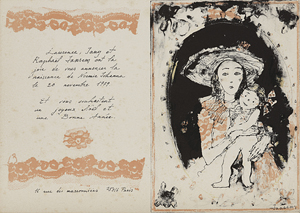 Laurence, Jamy et
Raphaël Samson ont la
joie de vous annoncer la
naissance de Noémie Johanna
le 20 novembre 1979
Et vous souhaitent
un joyeux Noël et
une Bonne Année.
15 rue des marronniers 75016 Paris